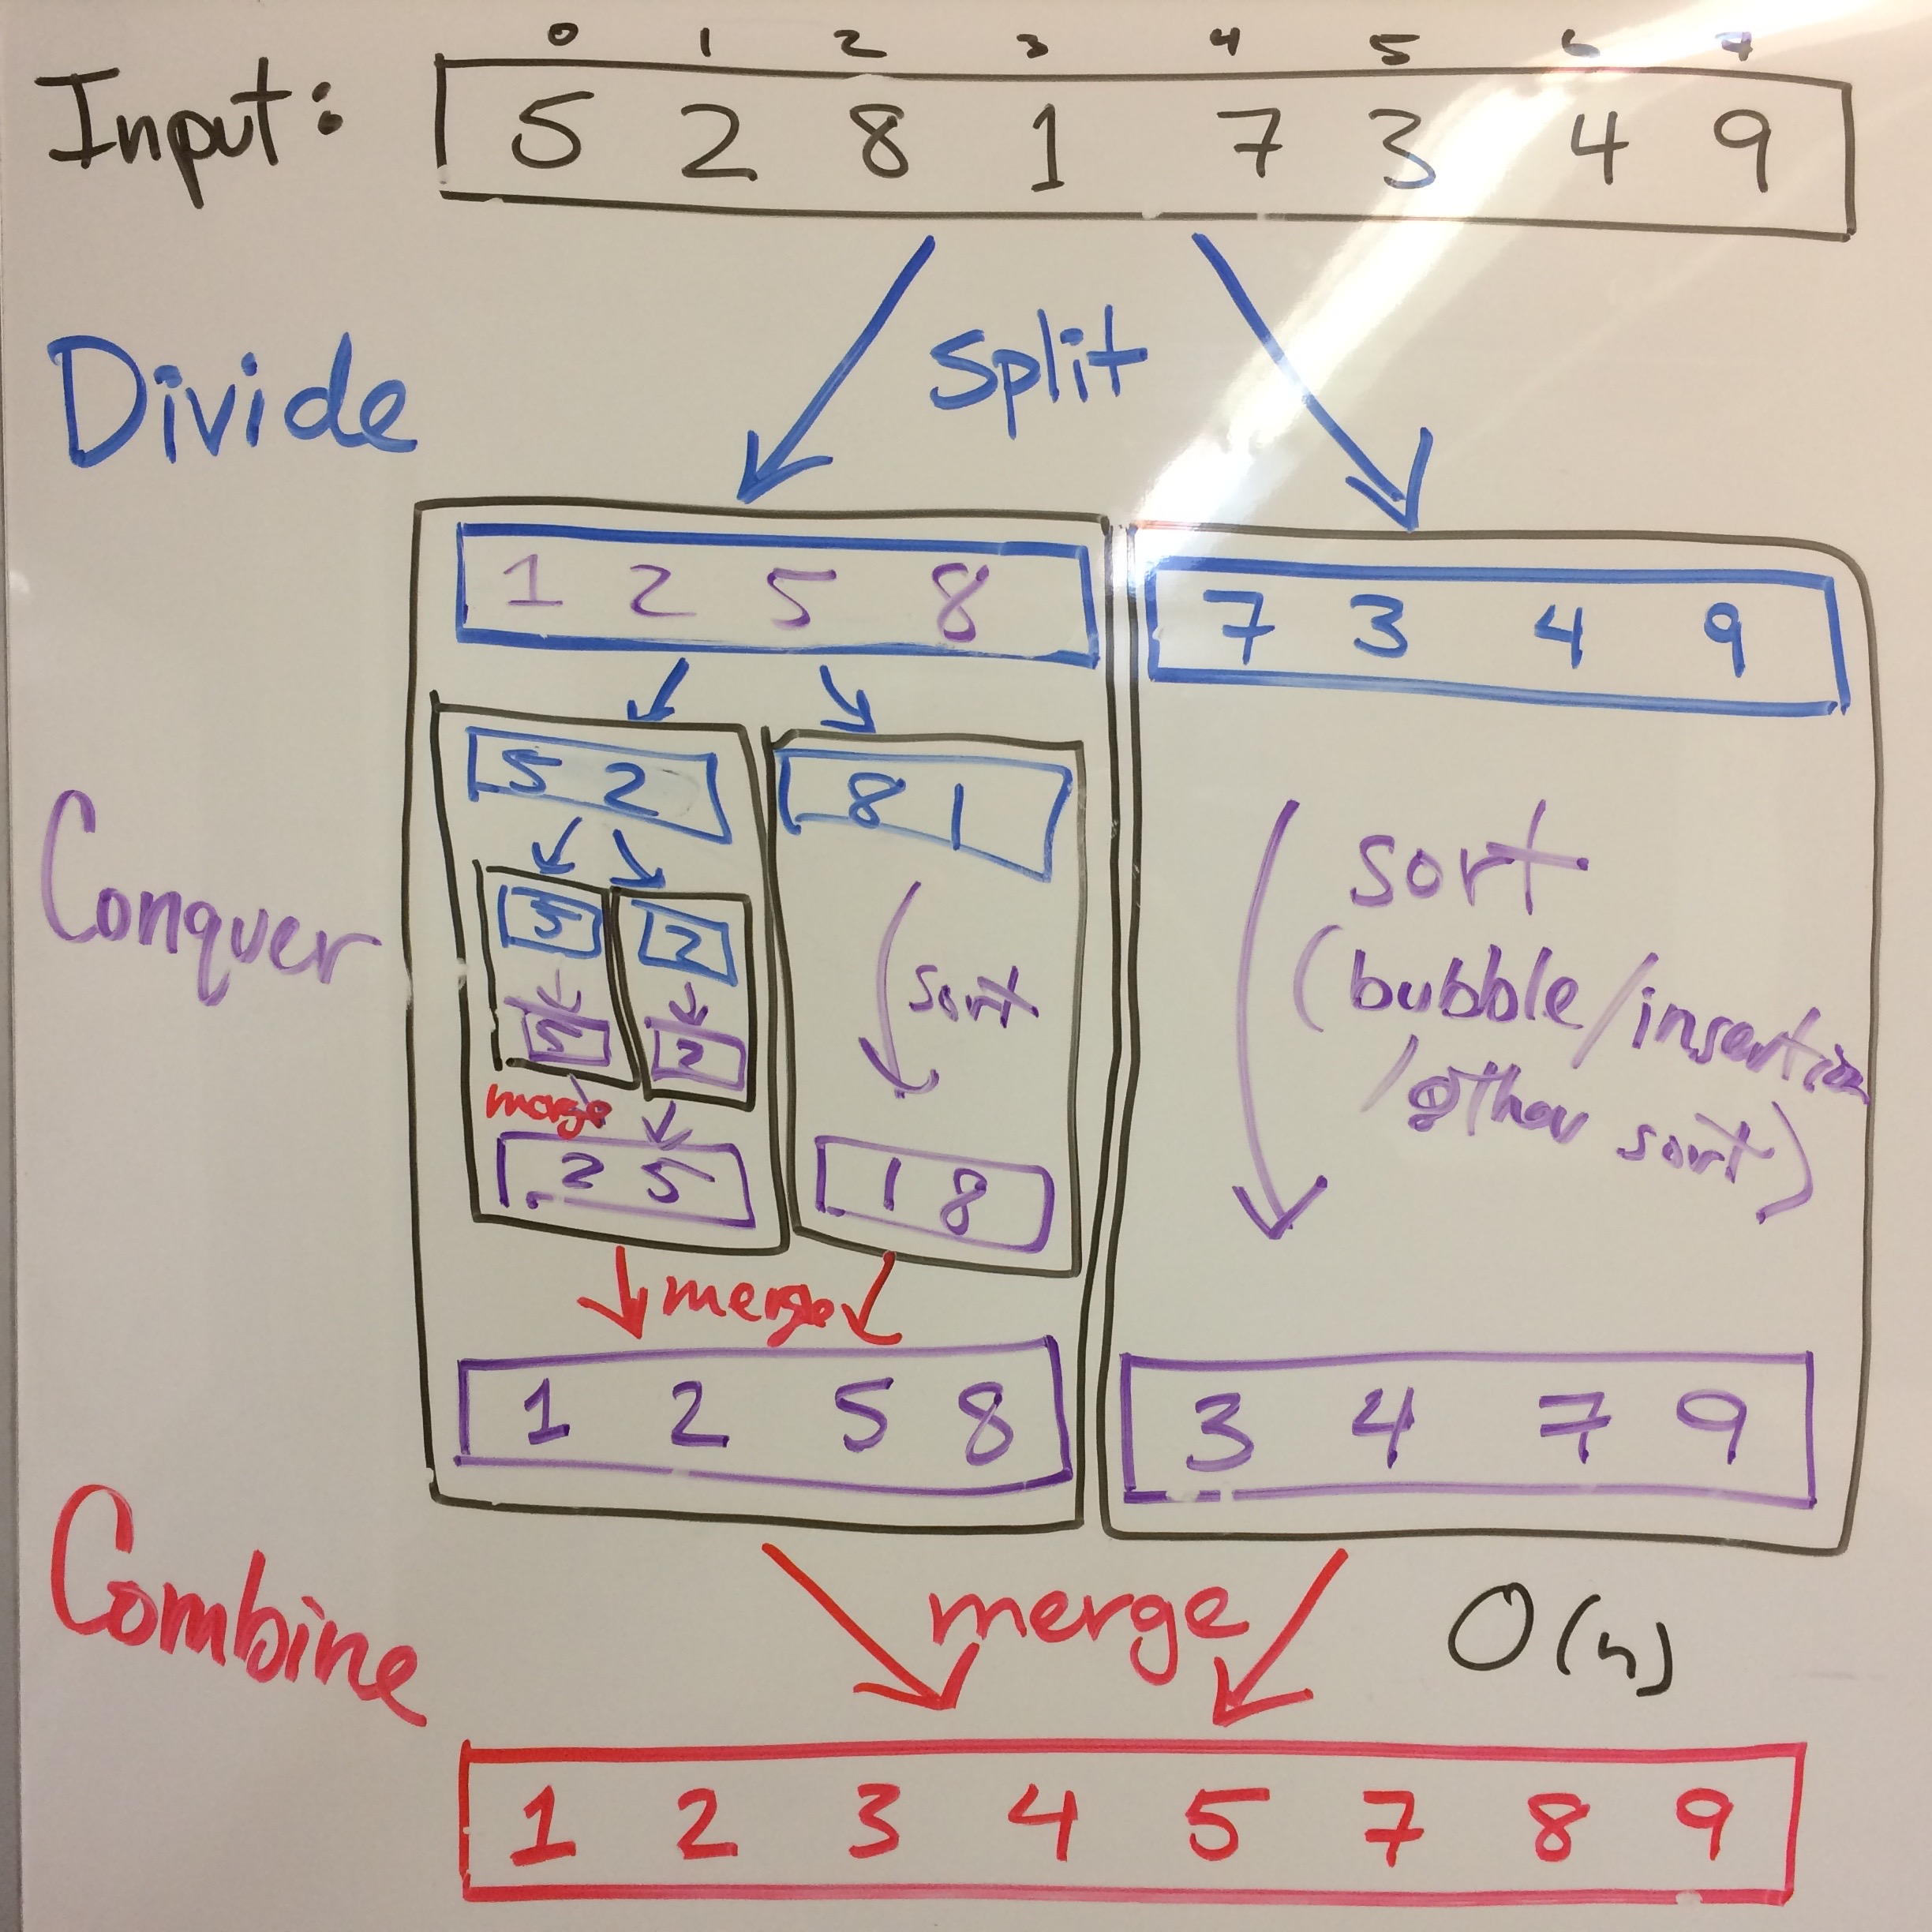 0 1 2 3 4 5 6 7
Input: 5 2 8 1 7 3 4 9
Divide
split
1 2 5 8
7 3 4 9
5 2
8 1
5
2
5
2
merge
2 5
sort
1 8
Conquer
sort
(bubble/insertion
/other sort)
merge
1 2 5 8
3 4 7 9
Combine
merge
O(n)
1 2 3 4 5 7 8 9